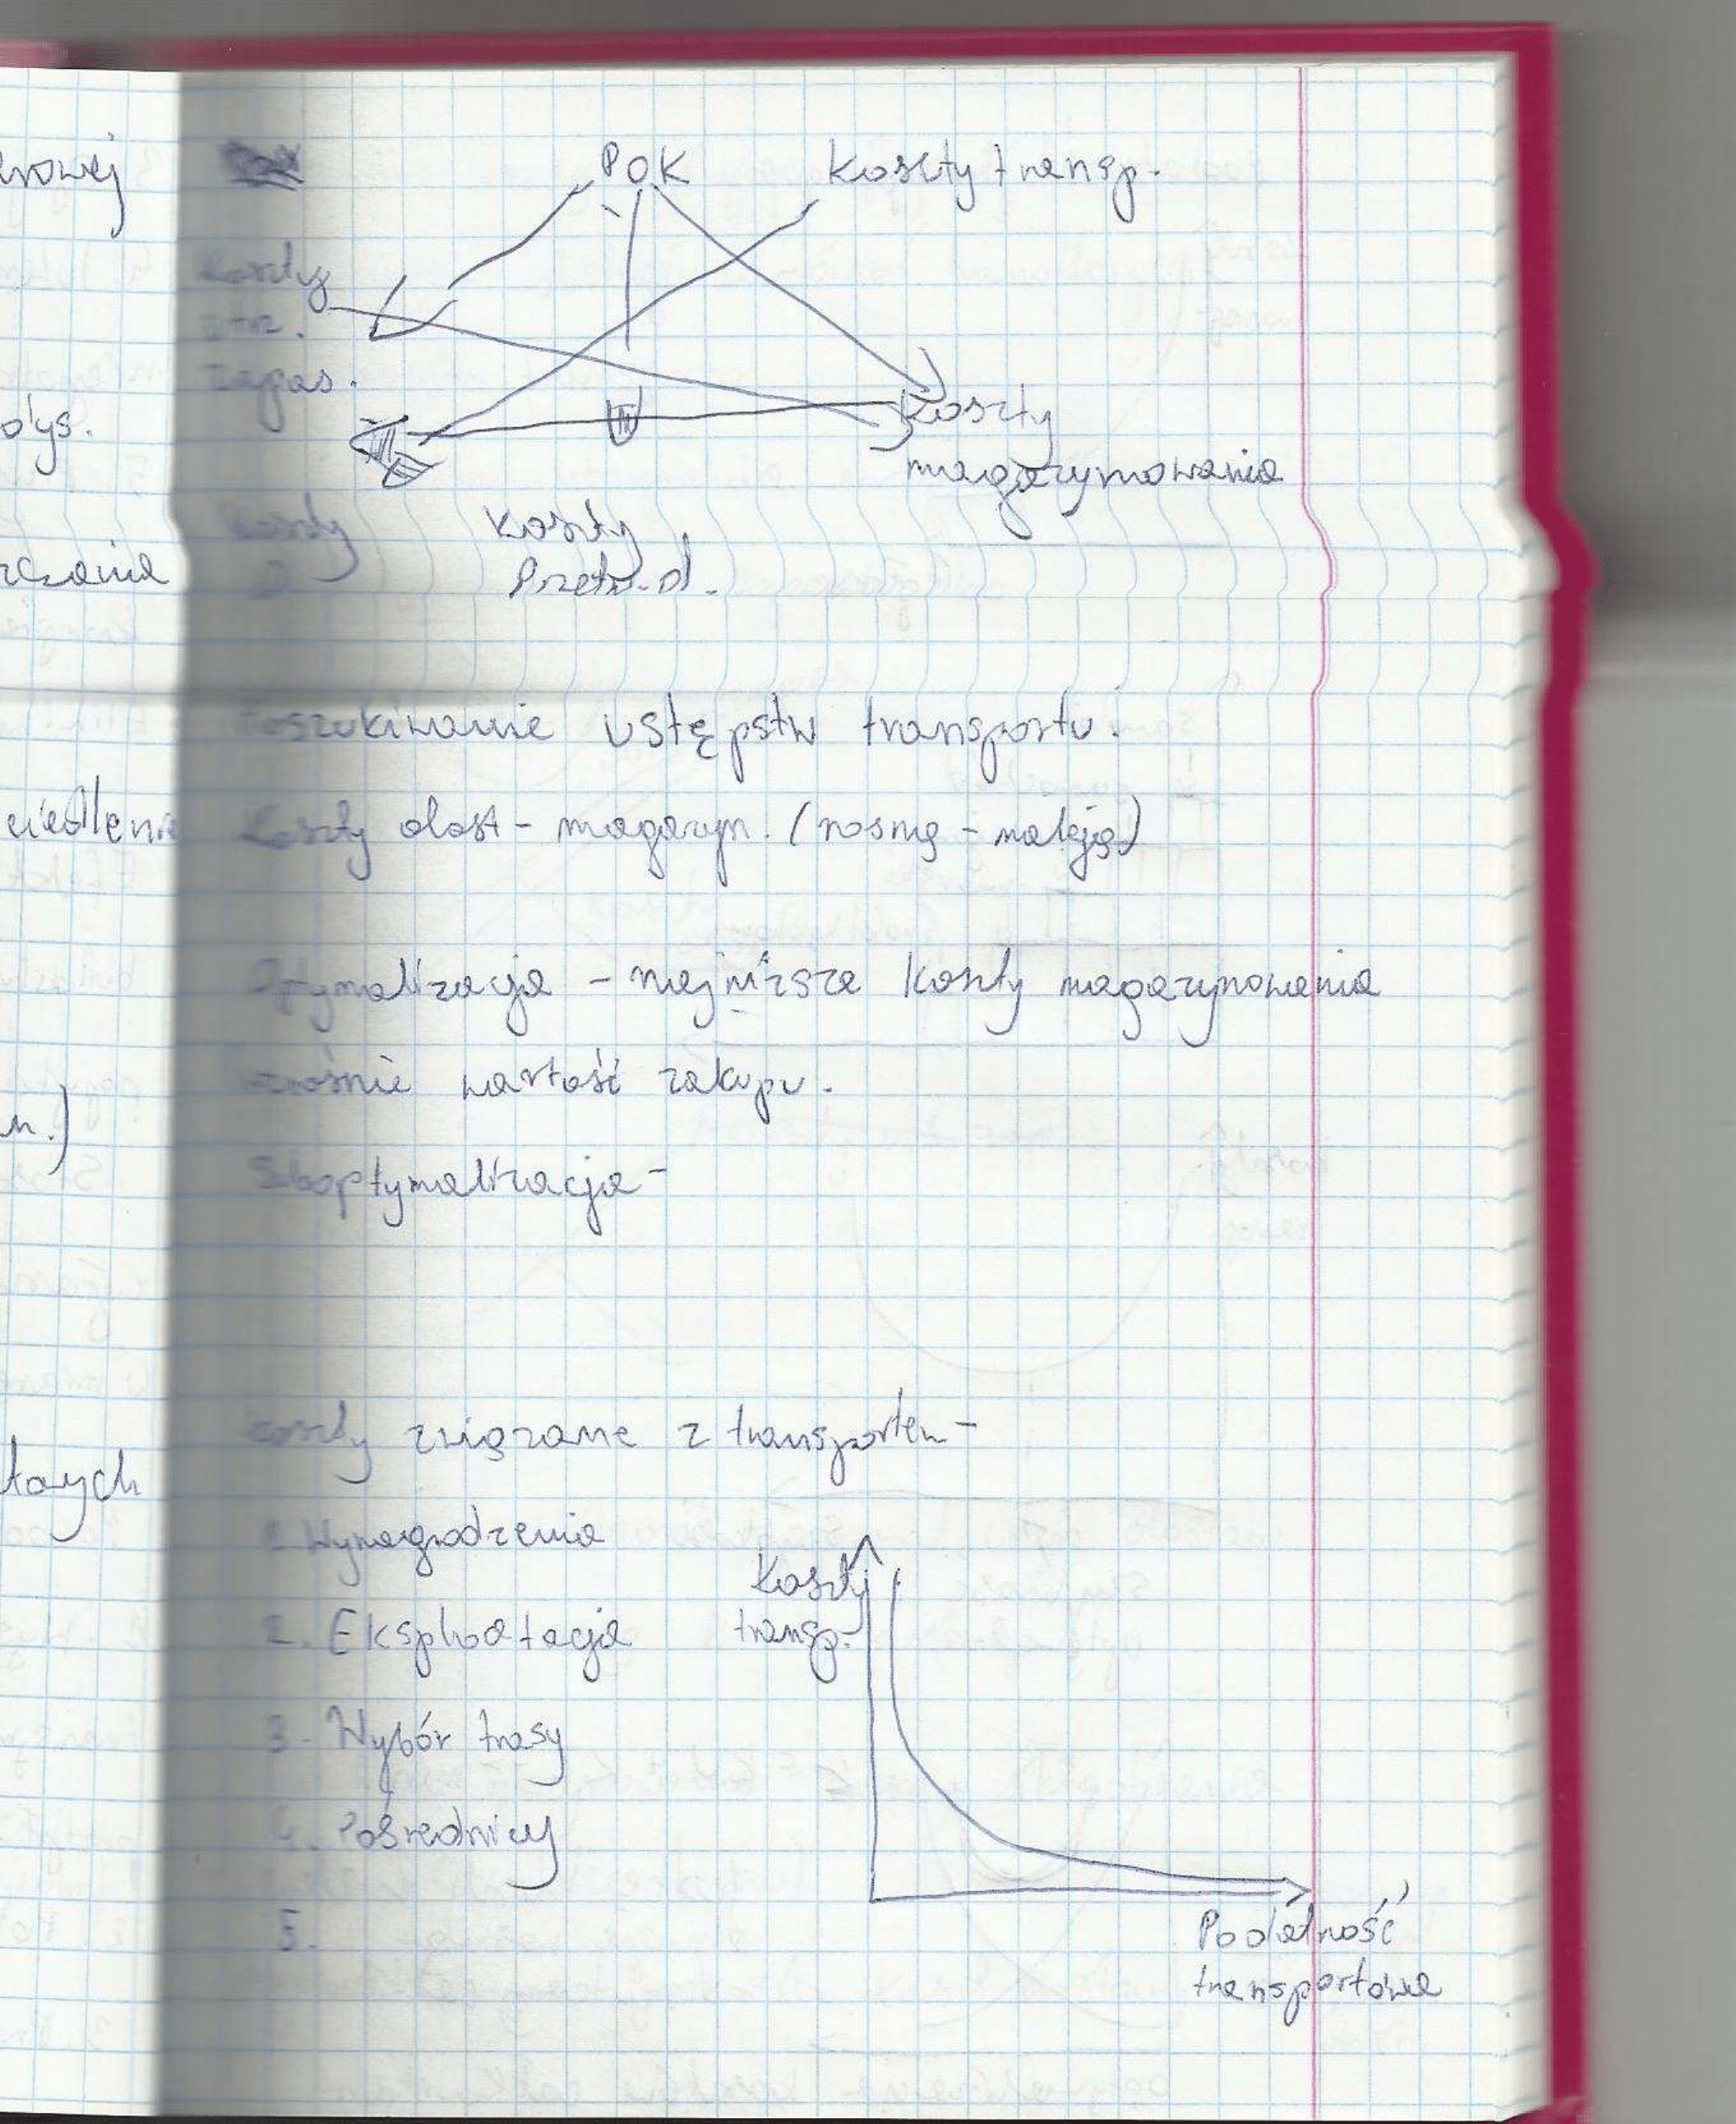 erowej
POK Koszty transp.
Koszty
utrz.
zapas.
Koszty
magazynowania
ólys.
Koszty Koszty
Przetw. d.
rczania
Poszukiwanie ustępstw transportu.
iedlenie
Koszty dost - magazyn. (rosną - maleją)
Optymalizacja - najniższe koszty magazynowania
wzrośnie wartość zakupu.
n.)
Suboptymalizacja -
Koszty związane z transportem -
tarych
1. Wynagrodzenia
2. Eksploatacja
3. Wybór trasy
4. Pośrednicy
5.
Koszty
transp.
Podatność
transportowa